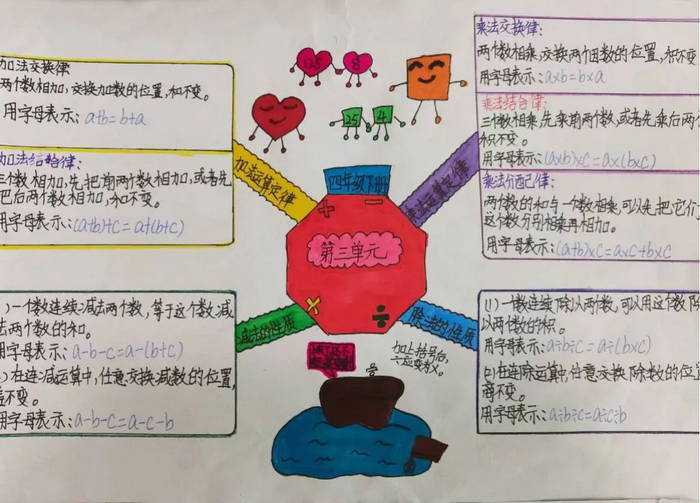 加法交换律
两个数相加,交换加数的位置,和不变。
用字母表示:a+b=b+a
加法结合律:
三个数相加,先把前两个数相加,或者先
把后两个数相加,和不变。
用字母表示:(a+b)+c=a+(b+c)
)一个数连续减去两个数,等于这个数减
去两个数的和。
用字母表示:a-b-c=a-(b+c)
)在连减运算中,任意交换减数的位置
不变。
用字母表示:a-b-c=a-c-b
8
25
4
加法运算定律
四年级下册
乘法运算定律
+
−
第三单元
×
÷
减法的性质
除法的性质
加上括号后,
÷
乘法交换律:
两个数相乘,交换两个因数的位置,积不变
用字母表示:a×b=b×a
乘法结合律:
三个数相乘,先乘前两个数,或者先乘后两个
积不变。
用字母表示:(a×b)×c=a×(b×c)
乘法分配律:
两个数的和与一个数相乘,可以先把它们
这个数分别相乘再相加。
用字母表示:(a+b)×c=a×c+b×c
(1)一个数连续除以两个数,可以用这个数除
以两个数的积。
用字母表示:a÷b÷c=a÷(b×c)
(2)在连除运算中,任意交换除数的位置
商不变。
用字母表示:a÷b÷c=a÷c÷b